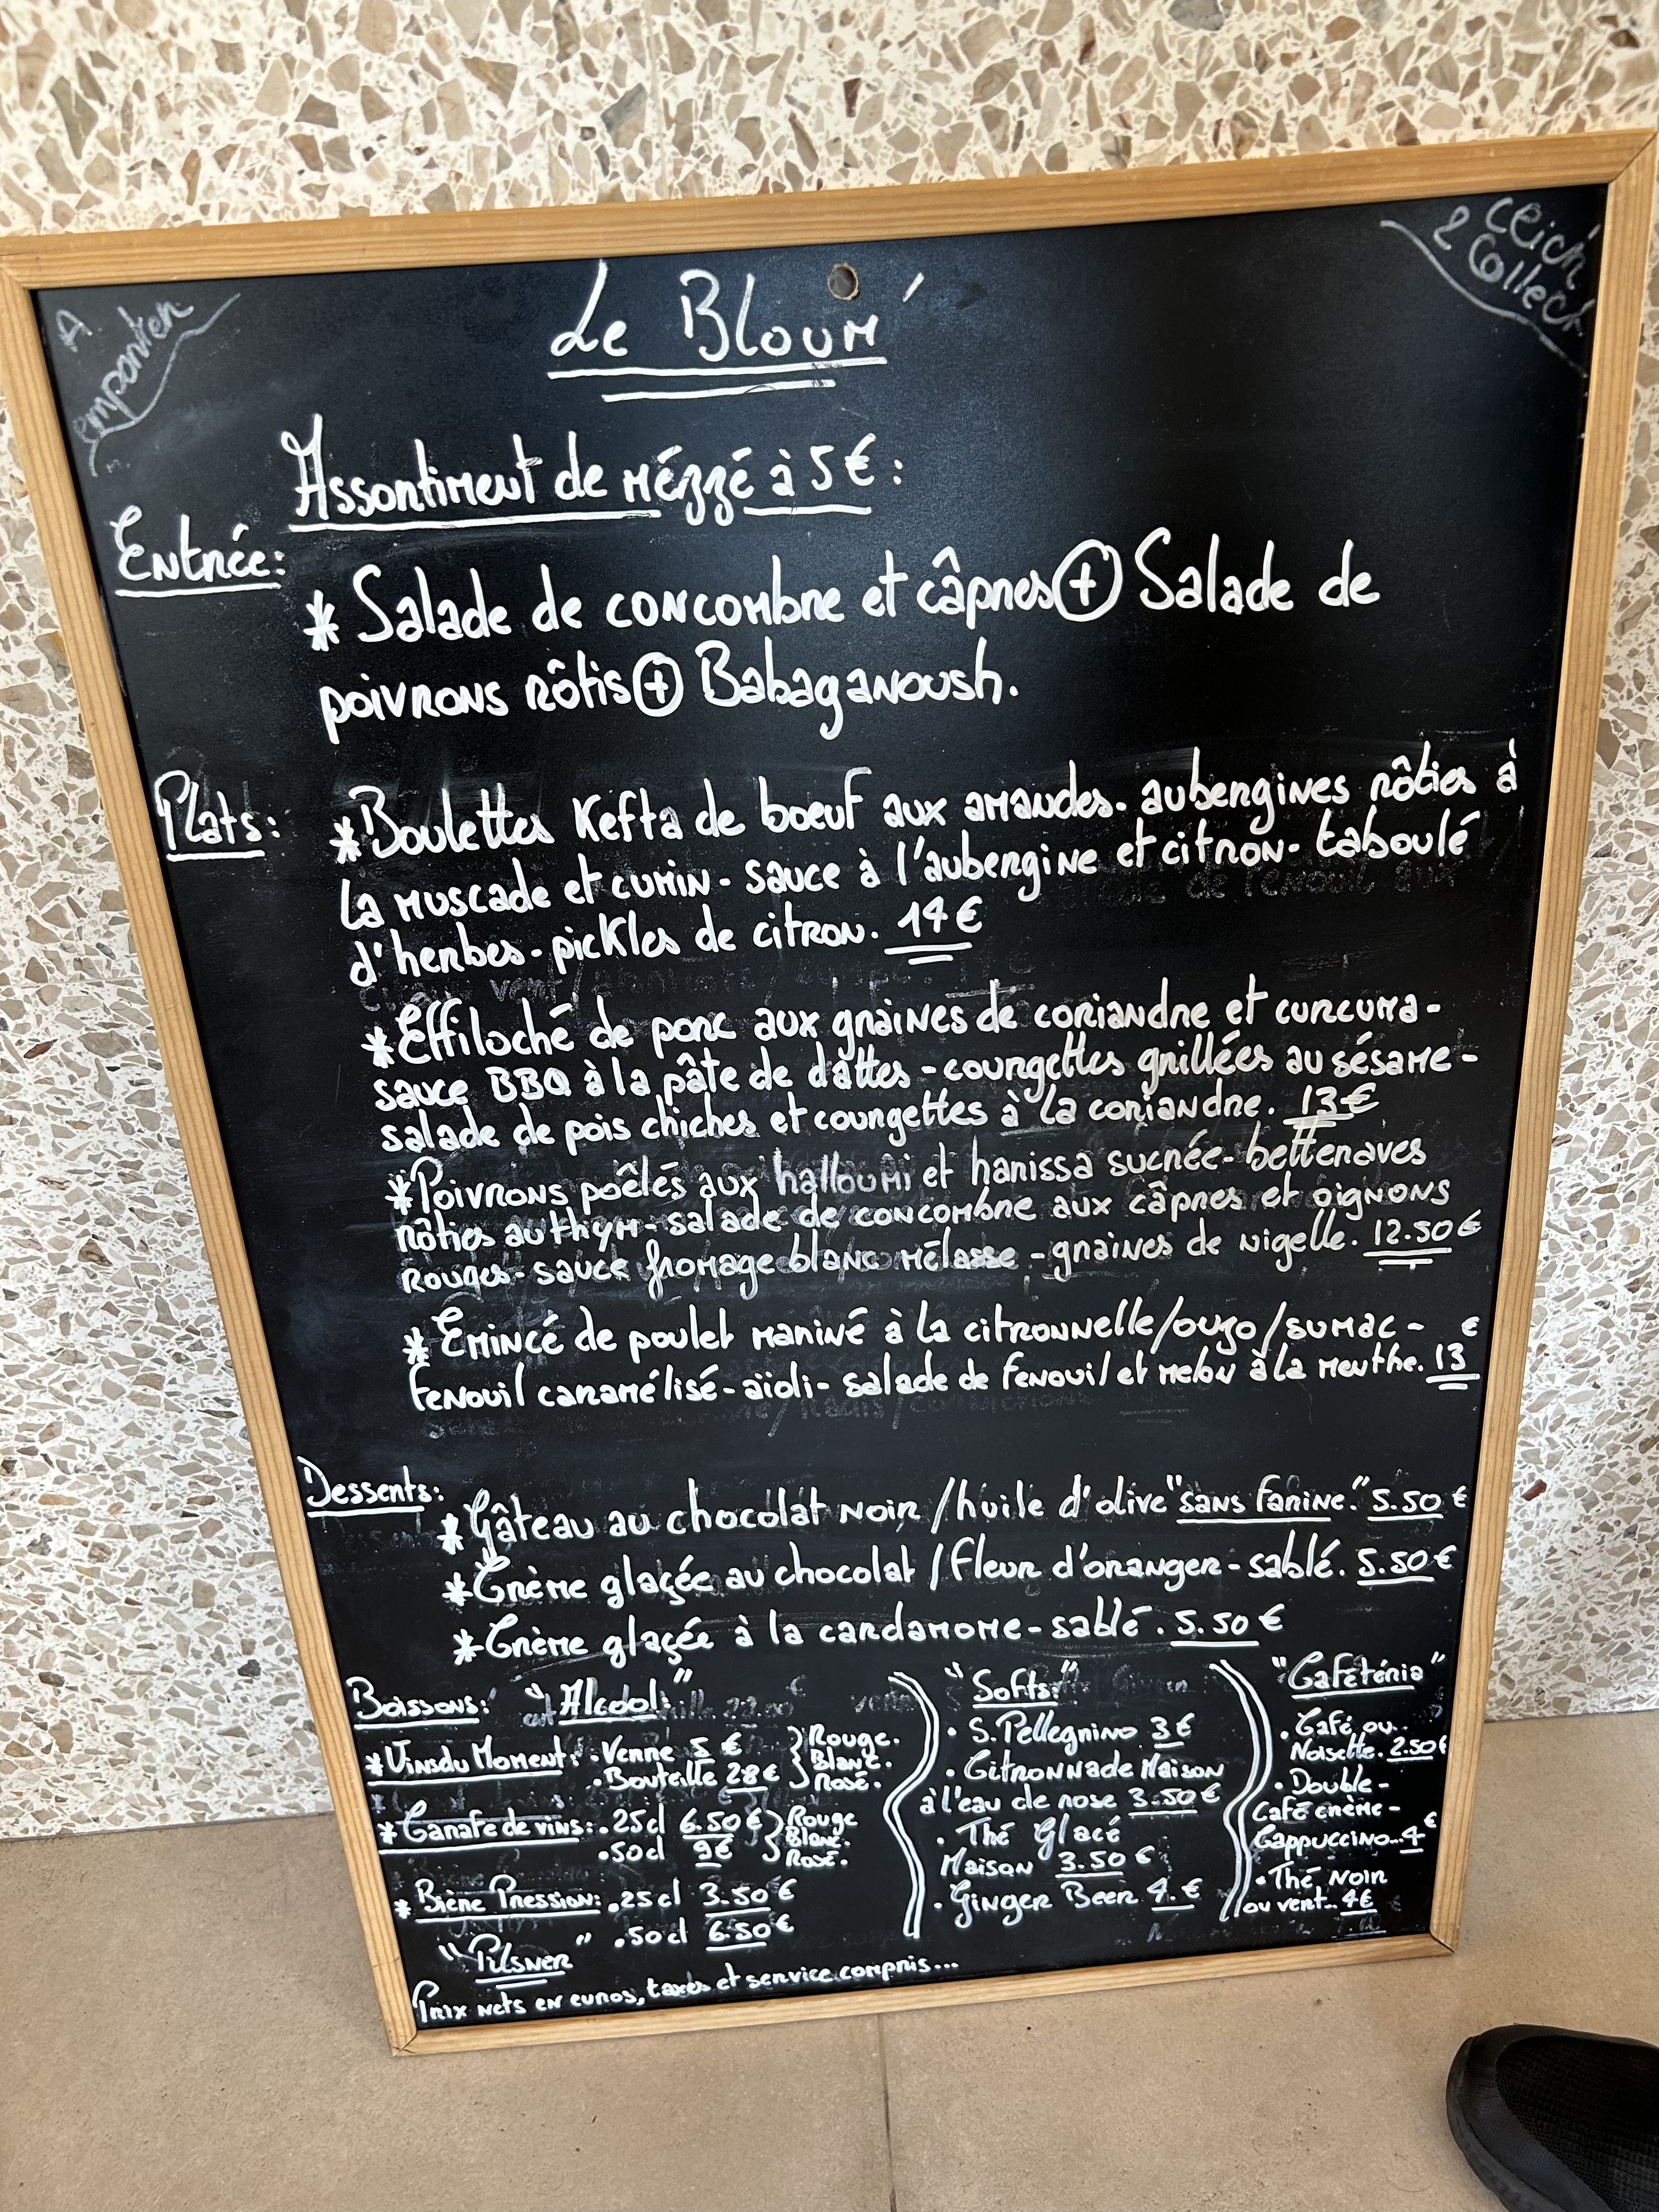 A
emporter
Click
& Collect
Le Bloum'
Assortiment de mézzé à 5€:
Entrée:
* Salade de concombre et câpres + Salade de
poivrons rôtis + Babaganoush.
Plats:
*Boulettes Kefta de boeuf aux amandes- aubergines rôties à
la muscade et cumin- sauce à l'aubergine et citron- taboulé
d'herbes- pickles de citron. 14€
*Effiloché de porc aux graines de coriandre et curcuma-
sauce BBQ à la pâte de dattes-courgettes grillées au sésame-
salade de pois chiches et courgettes à la coriandre. 13€
*Poivrons poêlés aux halloumi et harissa sucrée- betteraves
rôties au thym- salade de concombre aux câpres et oignons
rouges- sauce fromage blanc mélasse -graines de nigelle. 12.50€
*Emincé de poulet mariné à la citronnelle/ouzo/sumac - €
fenouil caramélisé-aïoli- salade de fenouil et melon à la menthe. 13
Desserts:
*Gâteau au chocolat noir/huile d'olive "sans farine." 5.50€
*Crème glaçée au chocolat/fleur d'oranger-sablé. 5.50€
*Crème glaçée à la cardamome-sablé. 5.50€
Boissons: "Alcool:"
*Vins du Moment: .Verre 5€
.Bouteille 28€
Rouge.
Blanc.
Rosé.
*Carafe de vins: .25cl 6.50€
.50cl 9€
Rouge
Blanc.
Rosé.
*Bière Pression: .25cl 3.50€
"Pilsner" .50cl 6.50€
"Softs:"
. S.Pellegrino 3€
. Citronnade Maison
à l'eau de rose 3.50€
. Thé Glacé
Maison 3.50€
. Ginger Beer 4.€
"Cafétéria"
. Café ou..
Noisette. 2.50€
. Double-
Café crème-
Cappuccino..4€
. Thé noir
ou vert.. 4€
Prix nets en euros, taxes et service compris...